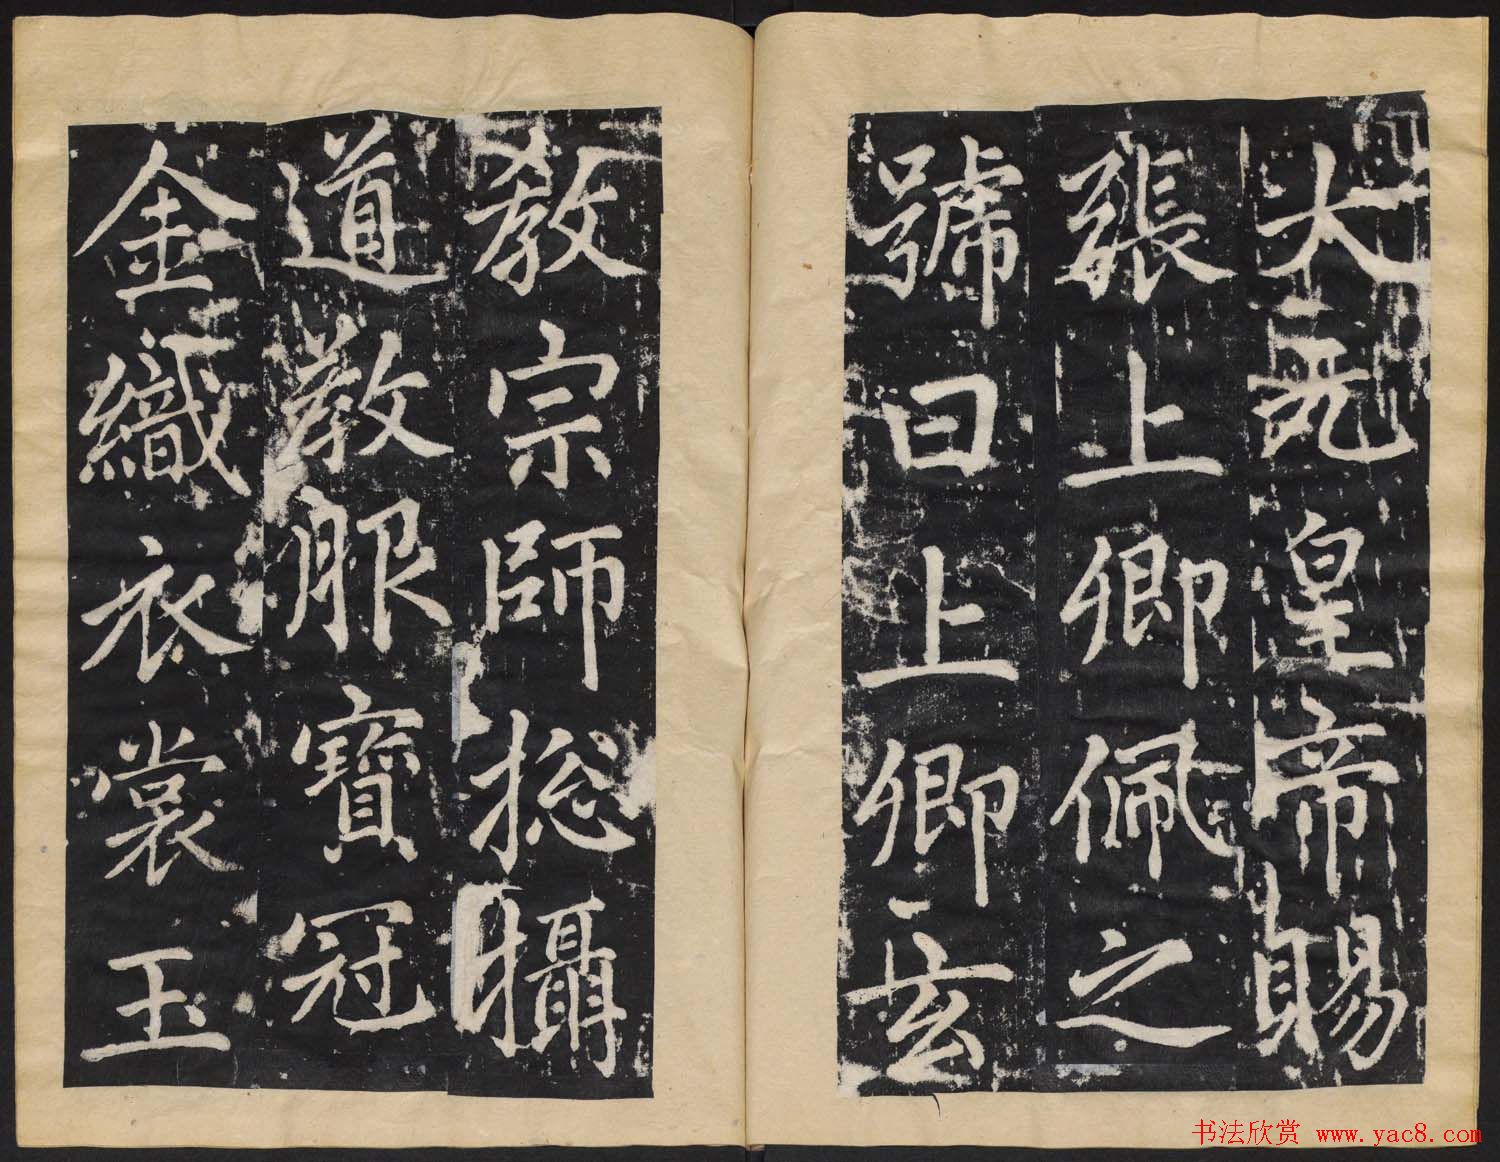 大元皇帝賜
張上卿佩之
號曰上卿玄
教宗師総攝
道教服寶冠
金織衣裳玉
书法欣赏 www.yac8.com